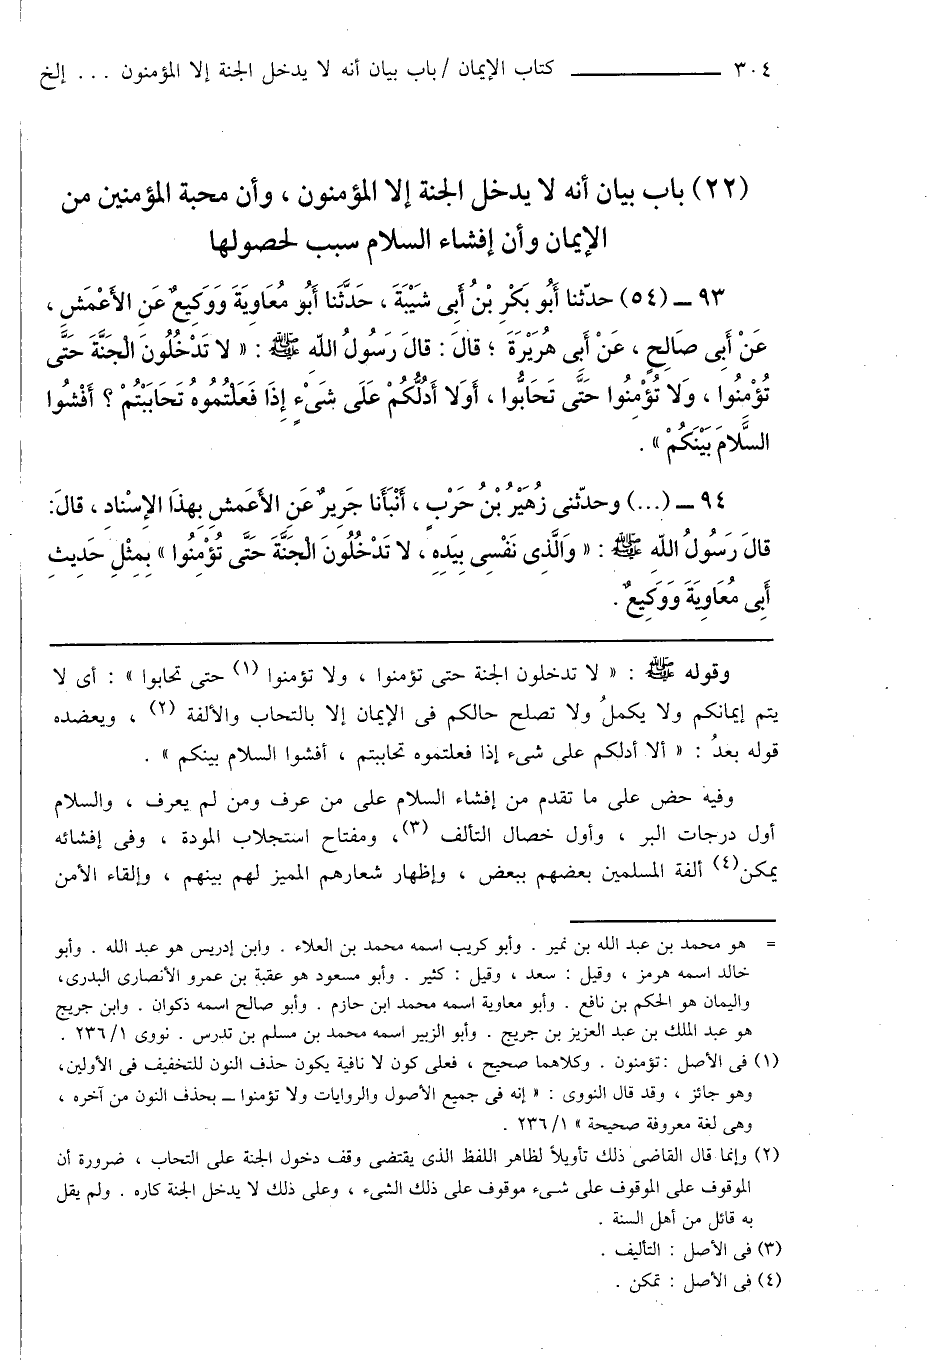 ٣٠٤ ــــــــ كتاب الإيمان / باب بيان أنه لا يدخل الجنة إلا المؤمنون ... إلخ
(٢٢) باب بيان أنه لا يدخل الجنة إلا المؤمنون ، وأن محبة المؤمنين من
الإيمان وأن إفشاء السلام سبب لحصولها
٩٣ ــ (٥٤) حدّثنا أَبُو بَكْرِ بْنُ أَبِى شَيْبَةَ ، حَدَّثَنا أَبُو مُعَاوِيَةَ وَوَكِيعٌ عَنِ الأَعْمَشِ ،
عَنْ أَبِى صَالِحٍ ، عَنْ أَبِى هُرَيْرَةَ ؛ قالَ : قالَ رَسُولُ اللّهِ ﷺ : « لا تَدْخُلُونَ الْجَنَّةَ حَتَّى
تُؤْمِنُوا ، وَلا تُؤْمِنُوا حَتَّى تَحَابُّوا ، أَوَلا أَدُلُّكُمْ عَلَى شَىْءٍ إِذَا فَعَلْتُمُوهُ تَحَابَبْتُمْ ؟ أَفْشُوا
السَّلامَ بَيْنَكُمْ » .
٩٤ ــ (...) وحدّثنى زُهَيْرُ بْنُ حَرْبٍ ، أَنْبَأَنا جَرِيرٌ عَنِ الأَعمشِ بِهذَا الإِسْنادِ ، قالَ:
قالَ رَسُولُ اللّهِ ﷺ : « وَالَّذِى نَفْسِى بِيَدِهِ ، لا تَدْخُلُونَ الْجَنَّةَ حَتَّى تُؤْمِنُوا » بِمِثْلِ حَدِيثِ
أَبِى مُعَاوِيَةَ وَوَكِيعٌ .
وقوله ﷺ : « لا تدخلون الجنة حتى تؤمنوا ، ولا تؤمنوا (١) حتى تحابوا » : أى لا
يتم إيمانكم ولا يكملُ ولا تصلح حالكم فى الإيمان إلا بالتحاب والألفة (٢) ، ويعضده
قوله بعدُ : « ألا أدلكم على شىء إذا فعلتموه تحاببتم ، أفشوا السلام بينكم » .
وفيه حض على ما تقدم من إفشاء السلام على من عرف ومن لم يعرف ، والسلام
أول درجات البر ، وأول خصال التألف (٣)، ومفتاح استجلاب المودة ، وفى إفشائه
يمكن(٤) ألفة المسلمين بعضهم ببعض ، وإظهار شعارهم المميز لهم بينهم ، وإلقاء الأمن
= هو محمد بن عبد الله بن نمير . وأبو كريب اسمه محمد بن العلاء . وابن إدريس هو عبد الله . وأبو
خالد اسمه هرمز ، وقيل : سعد ، وقيل : كثير . وأبو مسعود هو عقبة بن عمرو الأنصارى البدرى،
واليمان هو الحكم بن نافع . وأبو معاوية اسمه محمد ابن حازم . وأبو صالح اسمه ذكوان . وابن جريج
هو عبد الملك بن عبد العزيز بن جريج . وأبو الزبير اسمه محمد بن مسلم بن تدرس . نووى ١/ ٢٣٦ .
(١) فى الأصل : تؤمنون . وكلاهما صحيح ، فعلى كون لا نافية يكون حذف النون للتخفيف فى الأولين،
وهو جائز ، وقد قال النووى : « إنه فى جميع الأصول والروايات ولا تؤمنوا ــ بحذف النون من آخره ،
وهى لغة معروفة صحيحة » ١/ ٢٣٦ .
(٢) وإنما قال القاضى ذلك تأويلاً لظاهر اللفظ الذى يقتضى وقف دخول الجنة على التحاب ، ضرورة أن
الموقوف على الموقوف على شىء موقوف على ذلك الشىء ، وعلى ذلك لا يدخل الجنة كاره . ولم يقل
به قائل من أهل السنة .
(٣) فى الأصل : التأليف .
(٤) فى الأصل : تمكن .